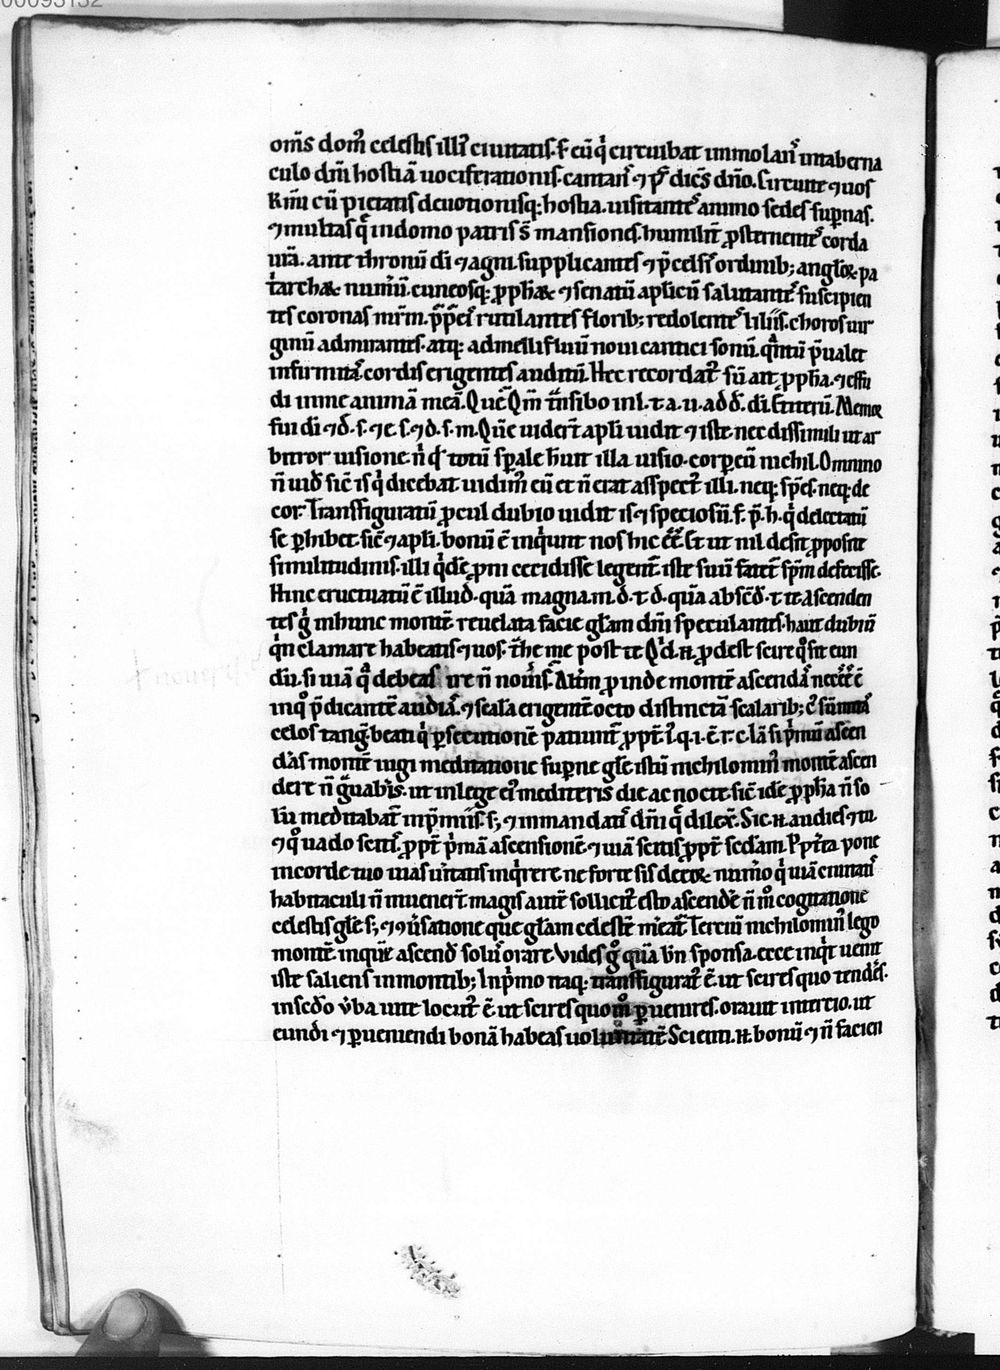 00093132
om̄s dom̄ celestis illi᷒ ciuitatis. f. cū q̇ circuibat immolan᷒ in taberna
culo dn̄i hostiā uociferationis. cantan᷒ ⁊ p᷒ dicēs dn̄o. Circuite ⁊ uos
k̄mi cū pietatis deuotionisq; hostia. uisitantes animo sedes sup̄nas.
⁊ multas q̄ in domo patris s̄ mansiones. humilit̄ ꝓsternentes corda
ur̄a. ante thronū di ⁊ agni. supplicantes ⁊ p̄celsis ordinib; angloꝝ pa
t̄archaꝝ numū. cuneosq; ꝓphaꝝ ⁊ senatū aplicū salutantes suscipien
tes coronas mr̄m. p̄p̄eis rutilantes florib; redolentes liliis. choros uir
ginū admirantes. atq; ad mellifluū noui cantici sonū. q̄ntū p̄ualet
infirmitas cordis erigentes auditū. Hec recordat᷒ sū ait ꝓpha. ⁊ effu
di in me animā meā. Quē Qm̄ t̄nsibo in l. t. a. u. ad d. di. Et iterū. Memor
fui di ⁊ d. s. ⁊ e. s. ⁊ d. s. m. Quē uider̄t apli uidit ⁊ iste nec dissimili ut ar
bitror uisione. n̄ q̄ totū sp̄ale h̄uit illa uisio. corp̄eū nichil. Omnino
n̄ uid̄ sic̄ is q̇ dicebat uidim᷒ eū et n̄ erat asspect᷒ illi. neq; sp̄es. neq; de
cor. Transfiguratū ꝓcul dubio uidit is ⁊ speciosū. f. p̄. h. q̇ delectatū
se ꝑhibet sic̄ ⁊ apli. bonū ē inq̇unt nos hic eē. Et ut nil desit ꝓposite
similitudinis. illi q̇dē ꝓni cecidisse legent᷒ iste suū fatet᷒ sp̄m defecisse.
Hinc eructuatū ē illud. quā magna m. d. t. d. quā absc̄d. t. t̄e. Ascenden
tes g̊ in hunc montē. reuelata facie gl̄am dn̄i speculantes. haut dubiū
q̇n clamare habeatis ⁊ uos. t̄he me post te Qd .n. ꝓdest scire q̊ sit eun
dū. si uiā q̄ debeas ire n̄ noueris. Alt̄m ꝓinde montē ascendas necesse ē
inq̊ p̄dicantē audias. ⁊ scalā erigentē octo distinctā scalarib;
celos tang̃. beati q̇ ꝑsecutionē patiunt᷒ ꝓpt᷒
das montē iugi meditatione sup̄ne gl̄e istū nichilomin᷒ montē ascen
dere n̄ g᷒uabis. ut in lege ei᷒ mediteris die ac nocte. sic̄ idē ꝓpha n̄ so
lū meditabat᷒ in p̄miis. s; ⁊ in mandatis dn̄i q̄ dilex᷒. Sic .n. audies ⁊ tu
⁊ q̊ uado scitis ꝓpt᷒ ṗmā ascensionē ⁊ uiā scitis ꝓpt᷒ sc̄dam. Ppt᷒ea pone
in corde tuo uias ueritatis inq̇rere. ne forte sis de eoꝝ num̄o q̇ uiā ciuitatis
habitaculi n̄ inuener̄t. magis aut̄ sollicit᷒ esto ascendē n̄ m̊ cogitatione
celestis gl̄e s; ⁊ ꝯuersatione que gl̄am celestē mereat᷒. Terciū nichilomin᷒ lego
montē in quē ascend̄ solus orare. Vides g̊ quā bn̄ sponsa. ecce inq̇t uenit
iste saliens in montib; In ṗmo itaq; transfigurat᷒ ē. ut scires quo tendes.
in sc̄do v̄ba uite locut᷒ ē. ut scires quom̊ ꝑuenires. orauit in tercio. ut
eundi ⁊ ꝑueniendi bonā habeas uoluntatē. Scienti .n. bonū ⁊ n̄ facien